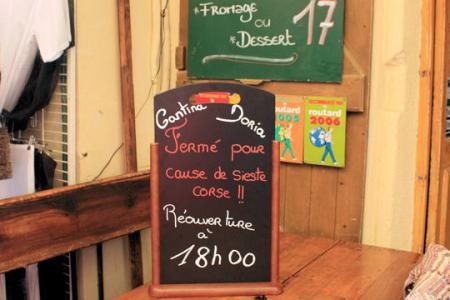 *Fromage
ou
*Dessert
17
Cantina Doria
Fermé pour
cause de sieste
corse !!
Réouverture
à
18h00
routard
2005
routard
2006